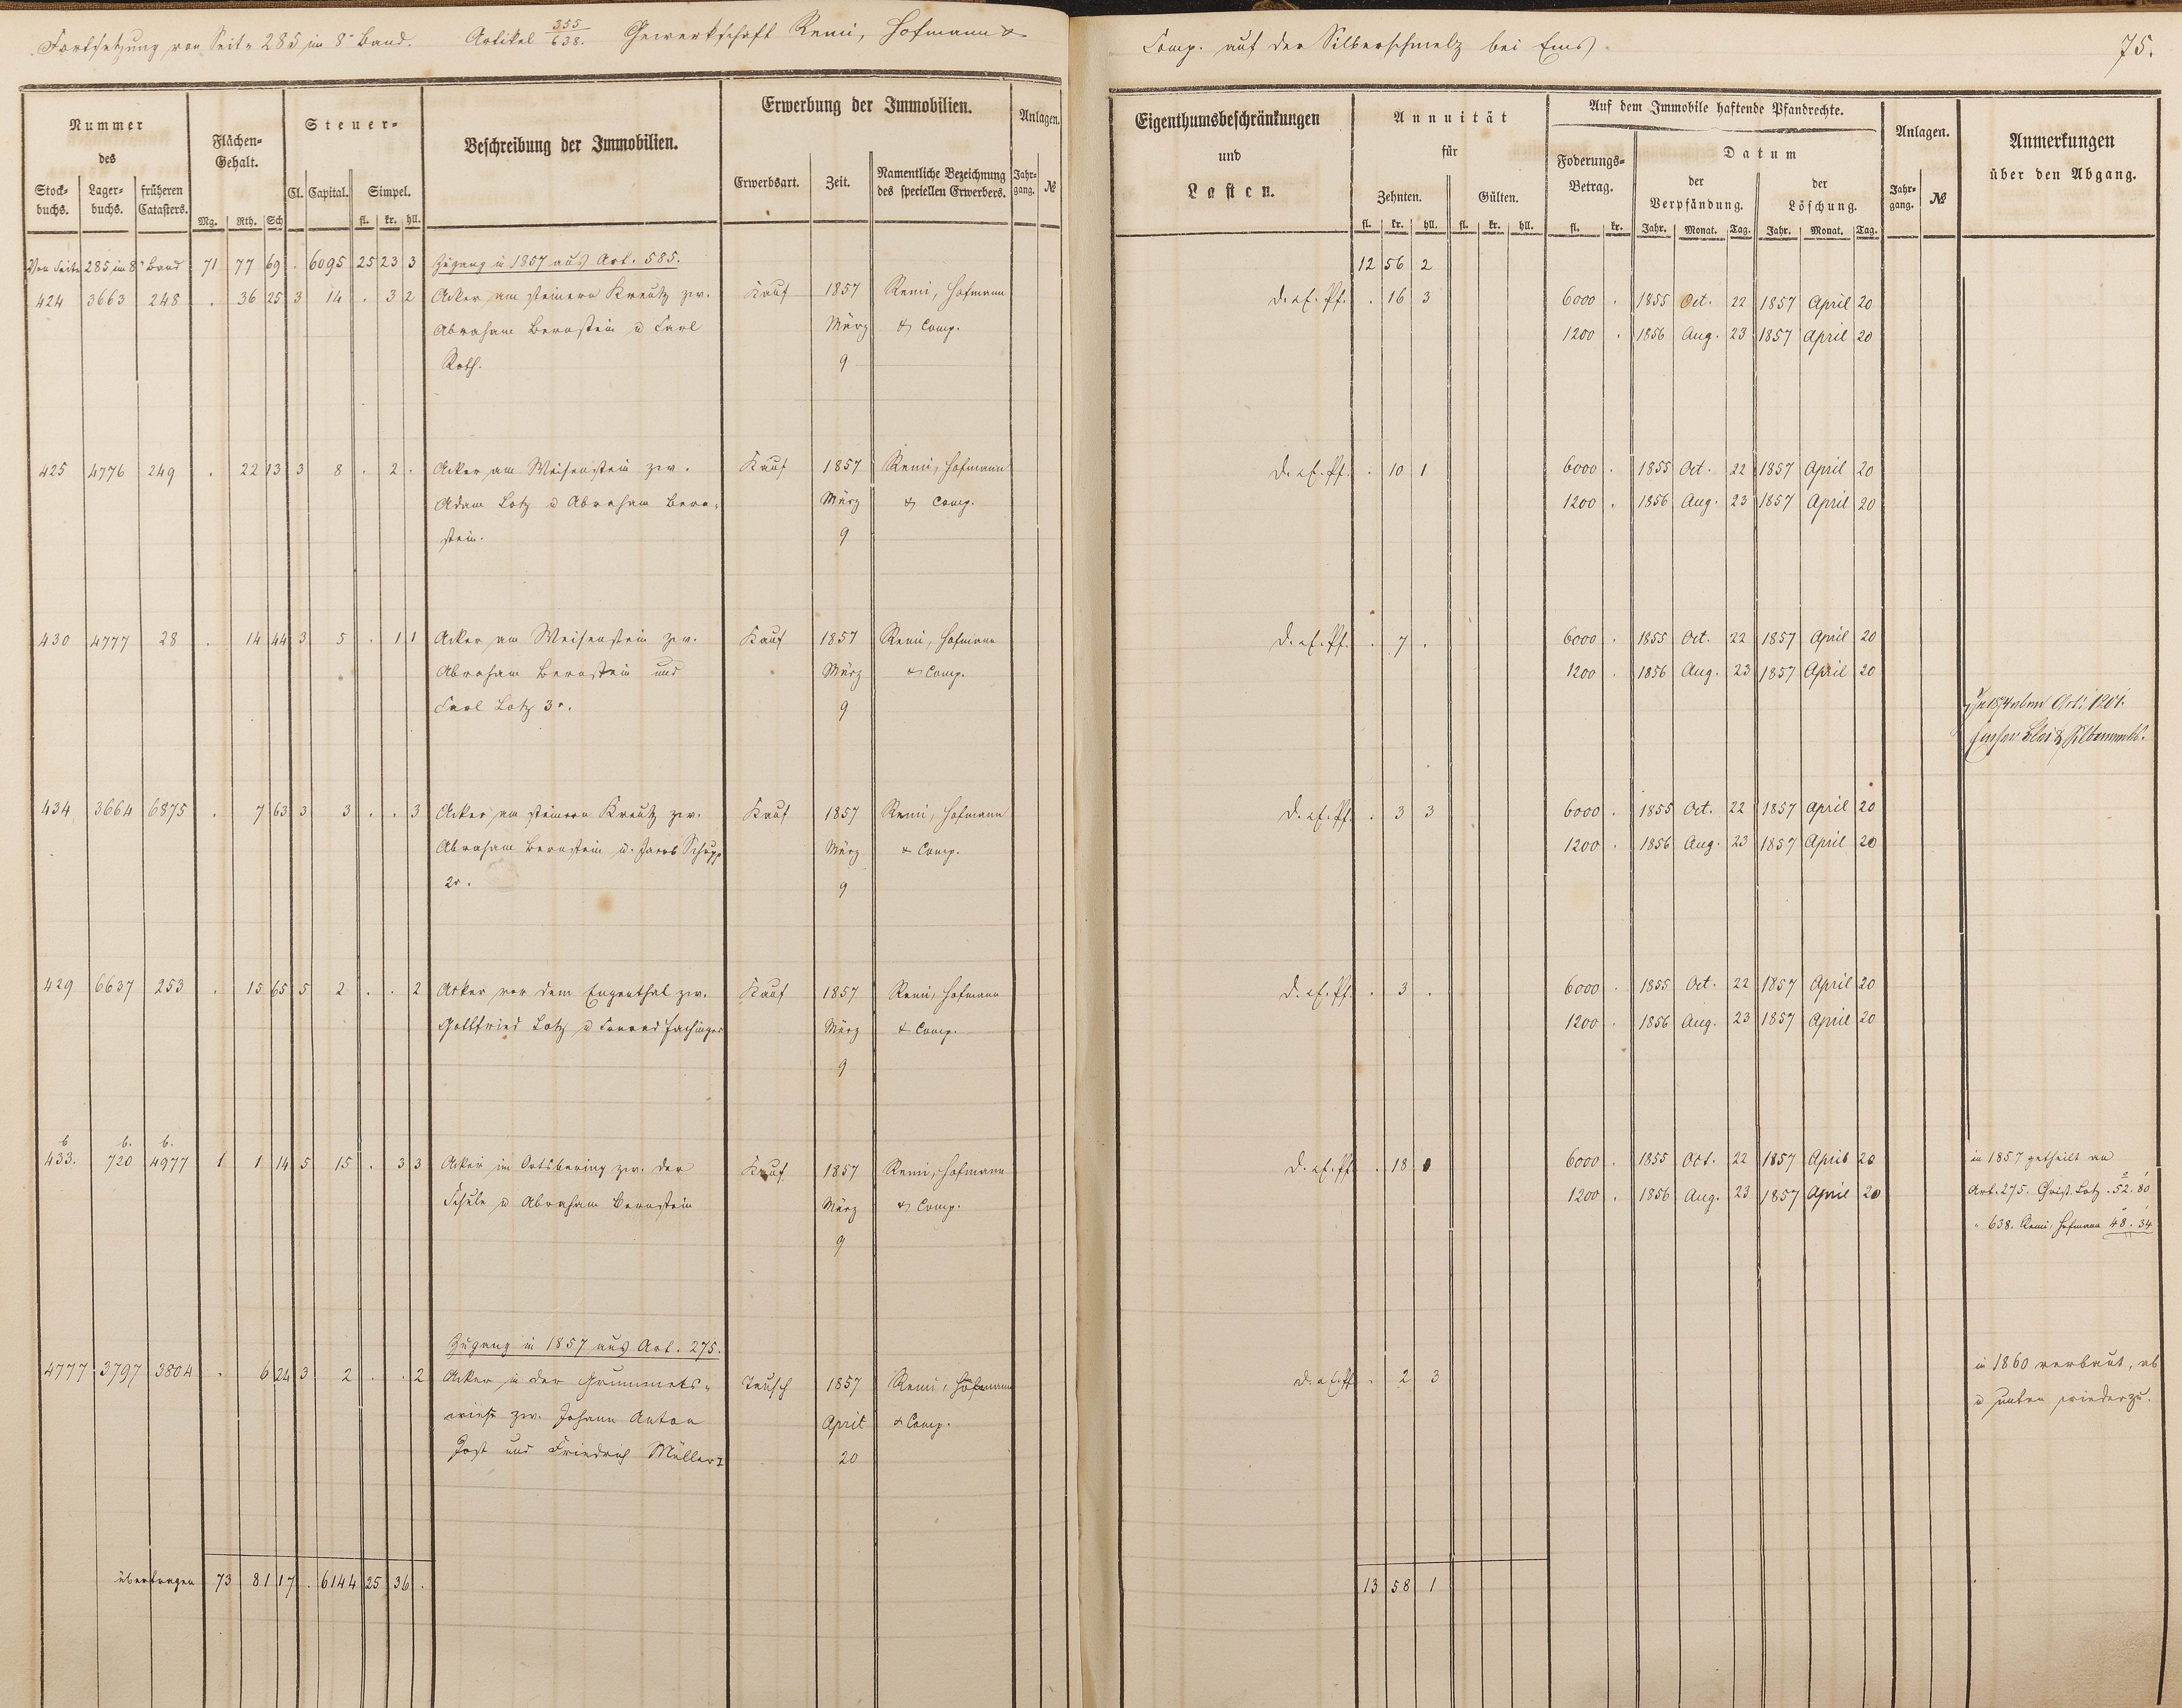 Fortsetzung von Seite 285 im 8r Band. Artikel 355/638. Gewerkschaft Remi, Hofmann &
Comp. auf der Silberschmelz bei Ems. 75.
Nummer des
Stockbuchs. Lagerbuchs. früheren Catasters.
Flächen-Gehalt.
Mg. Rth. Sch
Steuer-
Cl. Capital. Simpel.
fl. kr. hll.
Beschreibung der Immobilien.
Erwerbung der Immobilien.
Erwerbsart. Zeit. Namentliche Bezeichnung des speciellen Erwerbers.
Anlagen.
Jahrgang. №
Eigenthumsbeschränkungen
und
Lasten.
Annuität
für
Zehnten. Gülten.
fl. kr. hll. fl. kr. hll.
Auf dem Immobile haftende Pfandrechte.
Foderungs-Betrag.
fl. kr.
Datum
der Verpfändung. der Löschung.
Jahr. Monat. Tag. Jahr. Monat. Tag.
Anlagen.
Jahrgang. №
Anmerkungen
über den Abgang.
Von Seite 285 im 8r Band 71 77 69 . 6095 25 23 3 Zugang in 1857 aus Art. 585. 12 56 2
424 3663 248 . 36 25 3 14 . 3 2 Acker am steinern Kreutz zw. Kauf 1857 Remi, Hofmann . 16 3 6000 . 1855 Oct. 22 1857 April 20
Abraham Bernstein u Carl März & Comp. 1200 . 1856 Aug. 23 1857 April 20
Roth. 9
425 4776 249 . 22 13 3 8 . 2 . Acker am Weisenstein zw. Kauf 1857 Remi, Hofmann . 10 1 6000 . 1855 Oct. 22 1857 April 20
Adam Lotz u Abraham Bern- März & Comp. 1200 . 1856 Aug. 23 1857 April 20
stein. 9
430 4777 28 . 14 44 3 5 . 1 1 Acker am Weisenstein zw. Kauf 1857 Remi, Hofmann . 7 . 6000 . 1855 Oct. 22 1857 April 20
Abraham Bernstein und März & Comp. 1200 . 1856 Aug. 23 1857 April 20
Carl Lotz 3r. 9
434 3664 6875 . 7 63 3 3 . . 3 Acker am steinern Kreutz zw. Kauf 1857 Remi, Hofmann . 3 3 6000 . 1855 Oct. 22 1857 April 20
Abraham Bernstein u. Jacob Schupp März & Comp. 1200 . 1856 Aug. 23 1857 April 20
2r. 9
429 6637 253 . 15 65 5 2 . . 2 Acker vor dem Engenthal zw. Kauf 1857 Remi, Hofmann . 3 . 6000 . 1855 Oct. 22 1857 April 20
Gottfried Lotz u Conrad Fachinger März & Comp. 1200 . 1856 Aug. 23 1857 April 20
9
b b. b.
433. 720 4977 1 1 14 5 15 . 3 3 Acker im Ortsbering zw. der Kauf 1857 Remi, Hofmann . 18 6000 . 1855 Oct. 22 1857 April 20 in 1857 getheilt an
Schule u Abraham Bernstein März & Comp. 1200 . 1856 Aug. 23 1857 April 20 Art. 275. Christ. Lotz . 52. 80
9 " 638. Remi, Hofmann 48. 34
Zugang in 1857 aus Art. 275.
4777 3797 3804 . 6 24 3 2 . . 2 Acker in der Grummets- Tausch 1857 Remi, Hofmann . 2 3 in 1860 verbaut, ab
wiese zw. Johann Anton April & Comp. u unten wieder zu.
Jost und Friedrich Müller 20
übertragen 73 81 17 . 6144 25 36 . 13 58 1